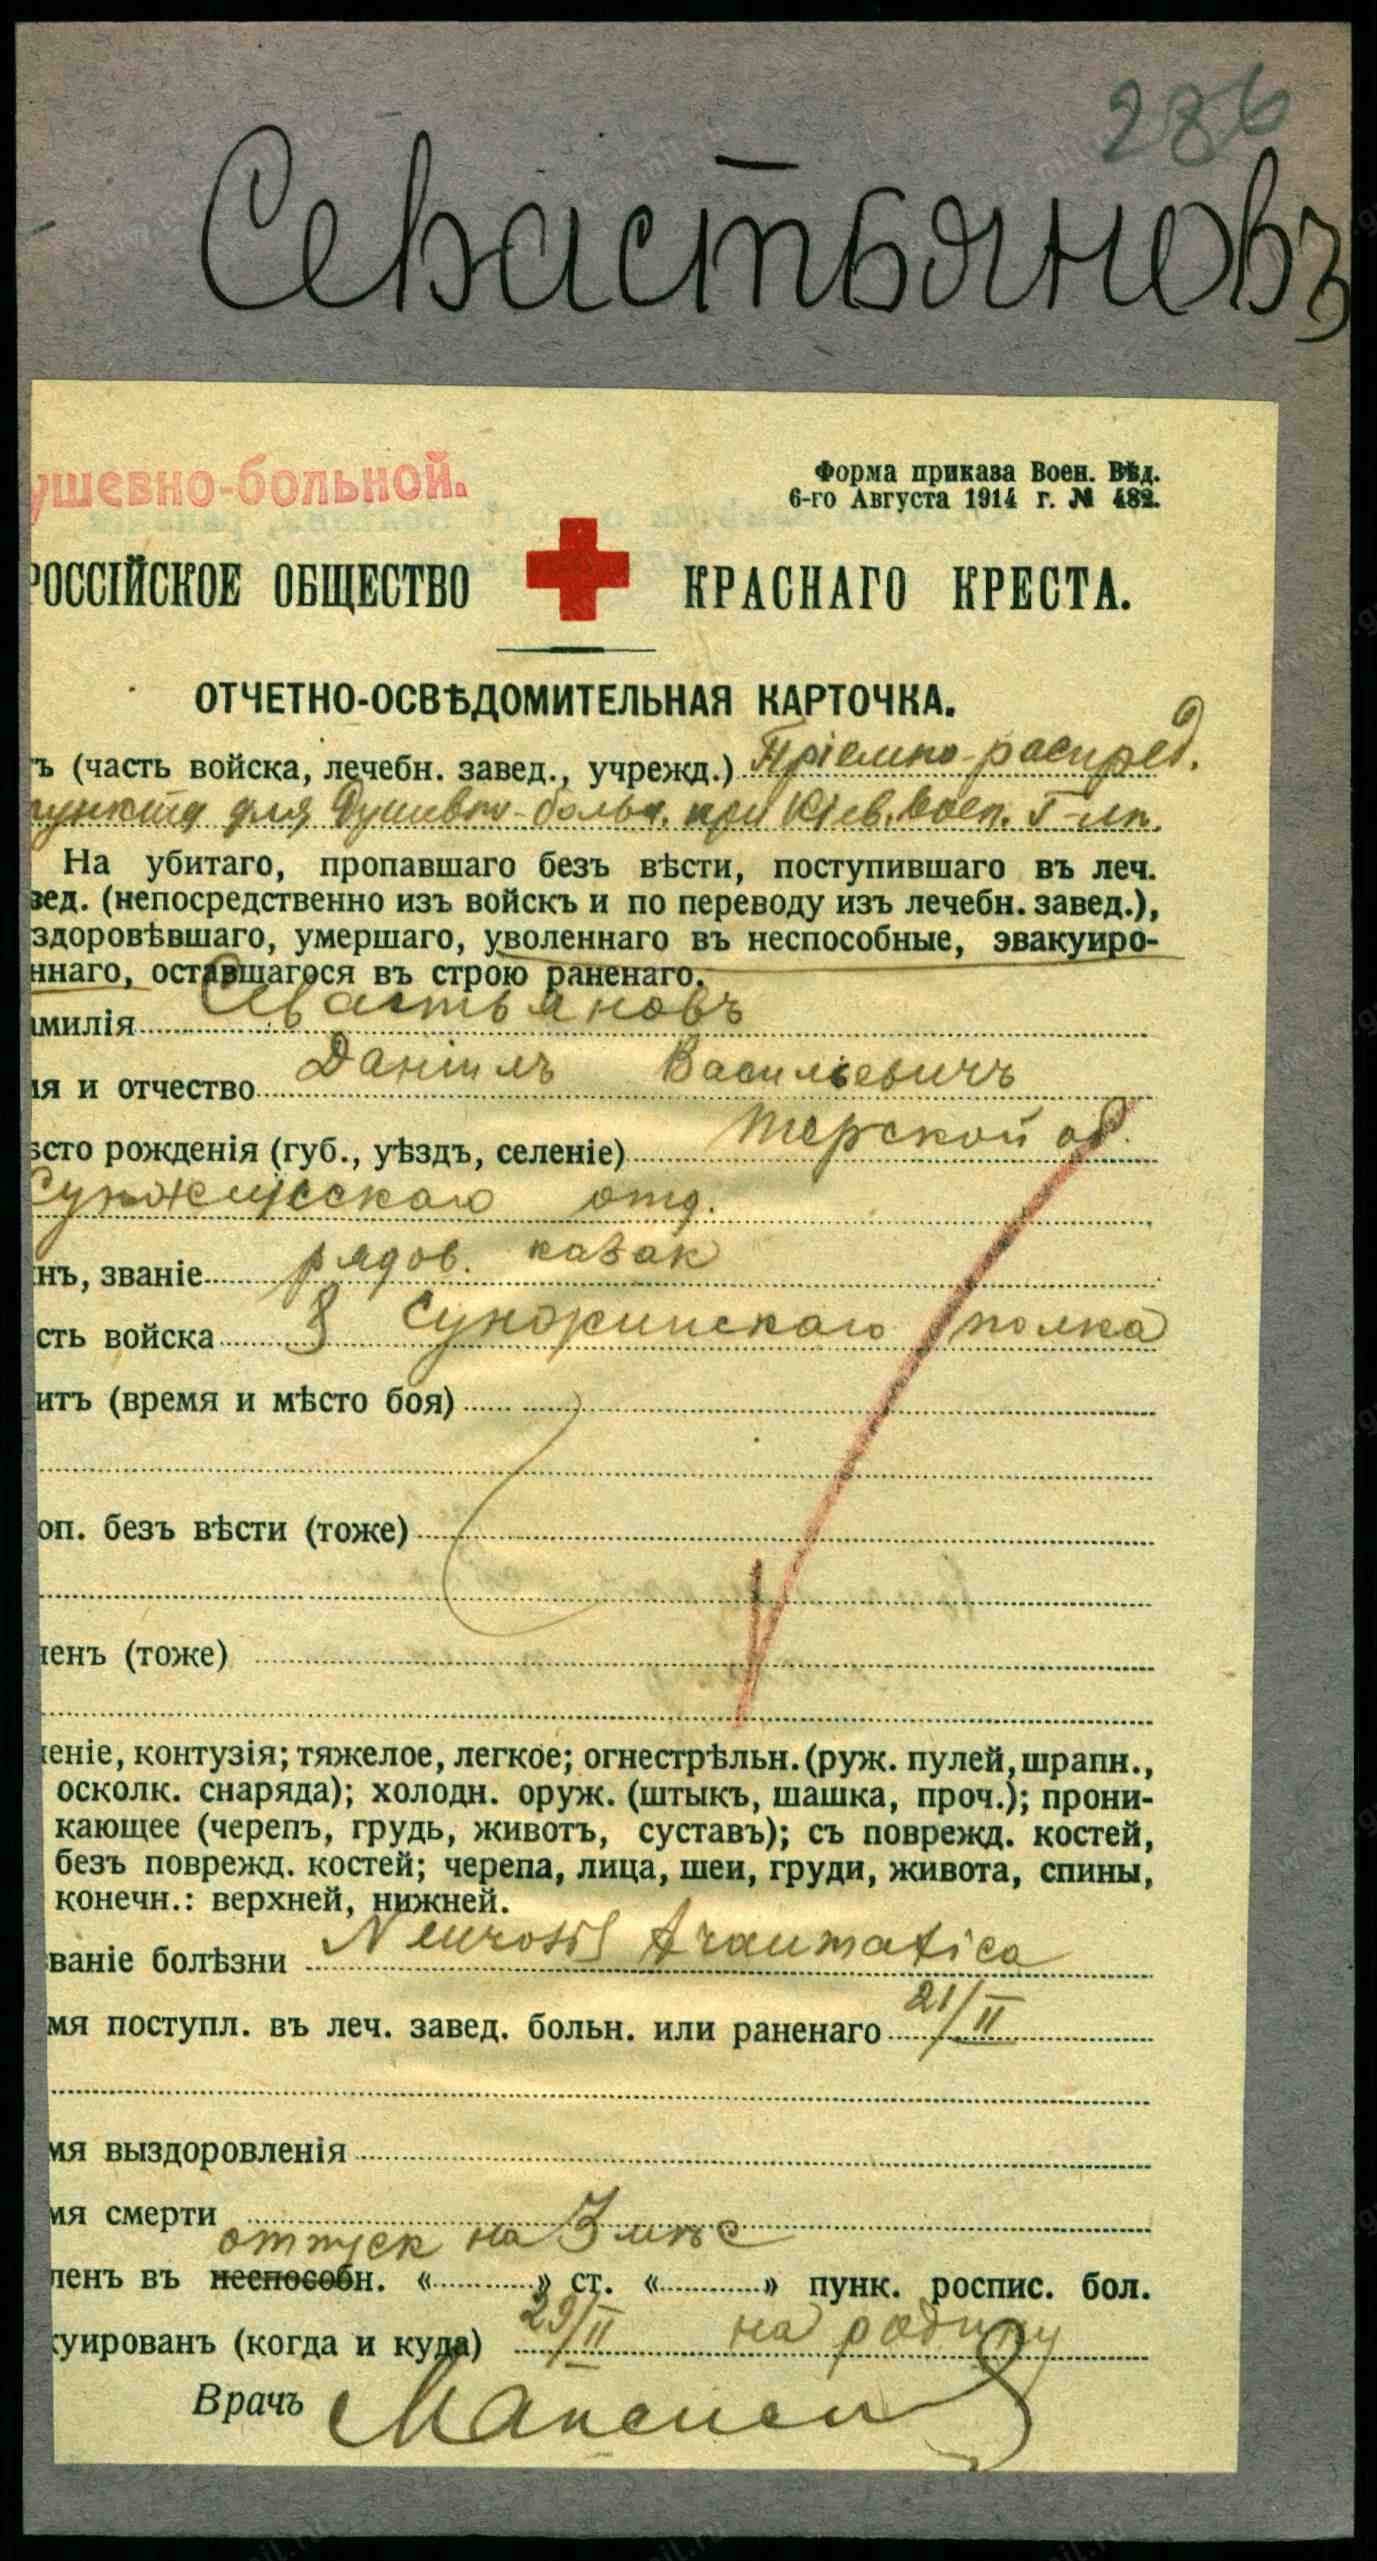 286
Севастьяновъ
ушевно-больной.
Форма приказа Воен. Вѣд.
6-го Августа 1914 г. № 482.
РОССІЙСКОЕ ОБЩЕСТВО КРАСНАГО КРЕСТА.
ОТЧЕТНО-ОСВѢДОМИТЕЛЬНАЯ КАРТОЧКА.
ъ (часть войска, лечебн. завед., учрежд.) Пріемно-распред.
пункта для Душевно-больн. при Кіев. Воен. Г-лѣ.
На убитаго, пропавшаго безъ вѣсти, поступившаго въ леч.
вед. (непосредственно изъ войскъ и по переводу изъ лечебн. завед.),
здоровѣвшаго, умершаго, уволеннаго въ неспособные, эвакуиро-
ннаго, оставшагося въ строю раненаго.
амилія Севастьяновъ
ія и отчество Даніилъ Васильевичъ
ѣсто рожденія (губ., уѣздъ, селеніе) Терской об.
Сунженскаго отд.
нъ, званіе рядов. казак
сть войска 3 Сунженскаго полка
итъ (время и мѣсто боя)
оп. безъ вѣсти (тоже)
ненъ (тоже)
еніе, контузія; тяжелое, легкое; огнестрѣльн. (руж. пулей, шрапн.,
осколк. снаряда); холодн. оруж. (штыкъ, шашка, проч.); прони-
кающее (черепъ, грудь, животъ, суставъ); съ поврежд. костей,
безъ поврежд. костей; черепа, лица, шеи, груди, живота, спины,
конечн.: верхней, нижней.
ваніе болѣзни Neurosis traumatica
мя поступл. въ леч. завед. больн. или раненаго 21/II
мя выздоровленія
мя смерти
отпуск на 3 мѣс
ленъ въ неспособн. «» ст. «» пунк. роспис. бол.
куированъ (когда и куда) 29/II на родину
Врачъ